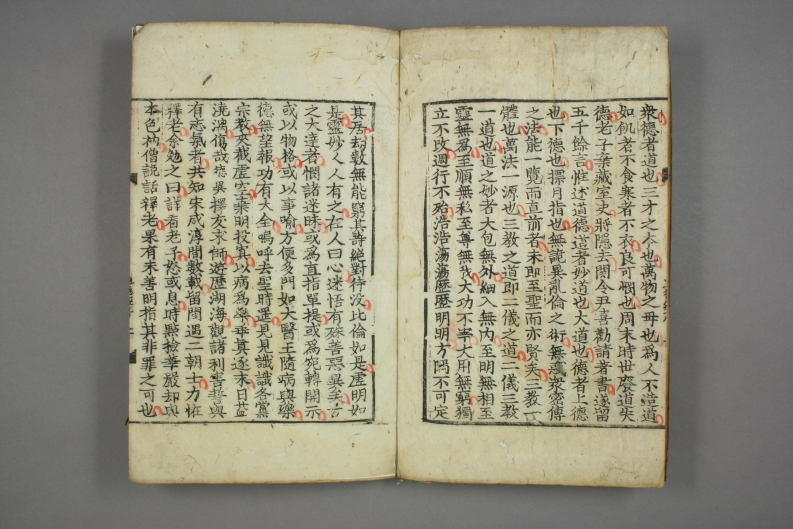 衆德者道也三才之本也萬物之毋也爲人不造道
如飢者不食寒者不衣良可憫也周末時世磨道失
德老子章藏室史將隱去関令尹喜勸請著書遂留
五千餘言恠述道德道者妙道也大道也德者上德
也下德也摽月指也無詭異亂倫之術無邊衆密傳
之法能一覽而直前者未即至聖而亦賢矣三教一
體也萬法一源也三教之道即二儀之道二儀三教
一道也道之妙者大包無外細入無内至明無相至
靈無爲至順無私至尊無我大功不宰大用無窮獨
立不改週行不殆浩浩蕩蕩歷歷明明方隅不可定
其居劫數無能窮其詩絕對待没比倫如是虛明如
是靈妙人人有之在人曰心迷悟有殊善惡異矣古
之大達者憫諸迷昧或爲直指單提或爲宛轉開示
或以物格或以事喻方便多門如大醫王隨病與藥
德無望報功有大全嗚呼去聖時遥見見識識各黨
宗教夹截虛空棄明投冥以病爲藥乖真逐末日益
澆漓傷哉德異擇友求師遊歷湖海觀諸利害誓與
有志氣者共知宋咸淳間數載留閩遇二朝士力恠
釋老余勉之曰詳看老子忿或息時點撿華嚴却與
本色衲僧說話釋老果有未善明指其非罪之可也